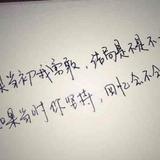 果当初我勇敢，结局是不是不
果当时你坚持，回忆会不会